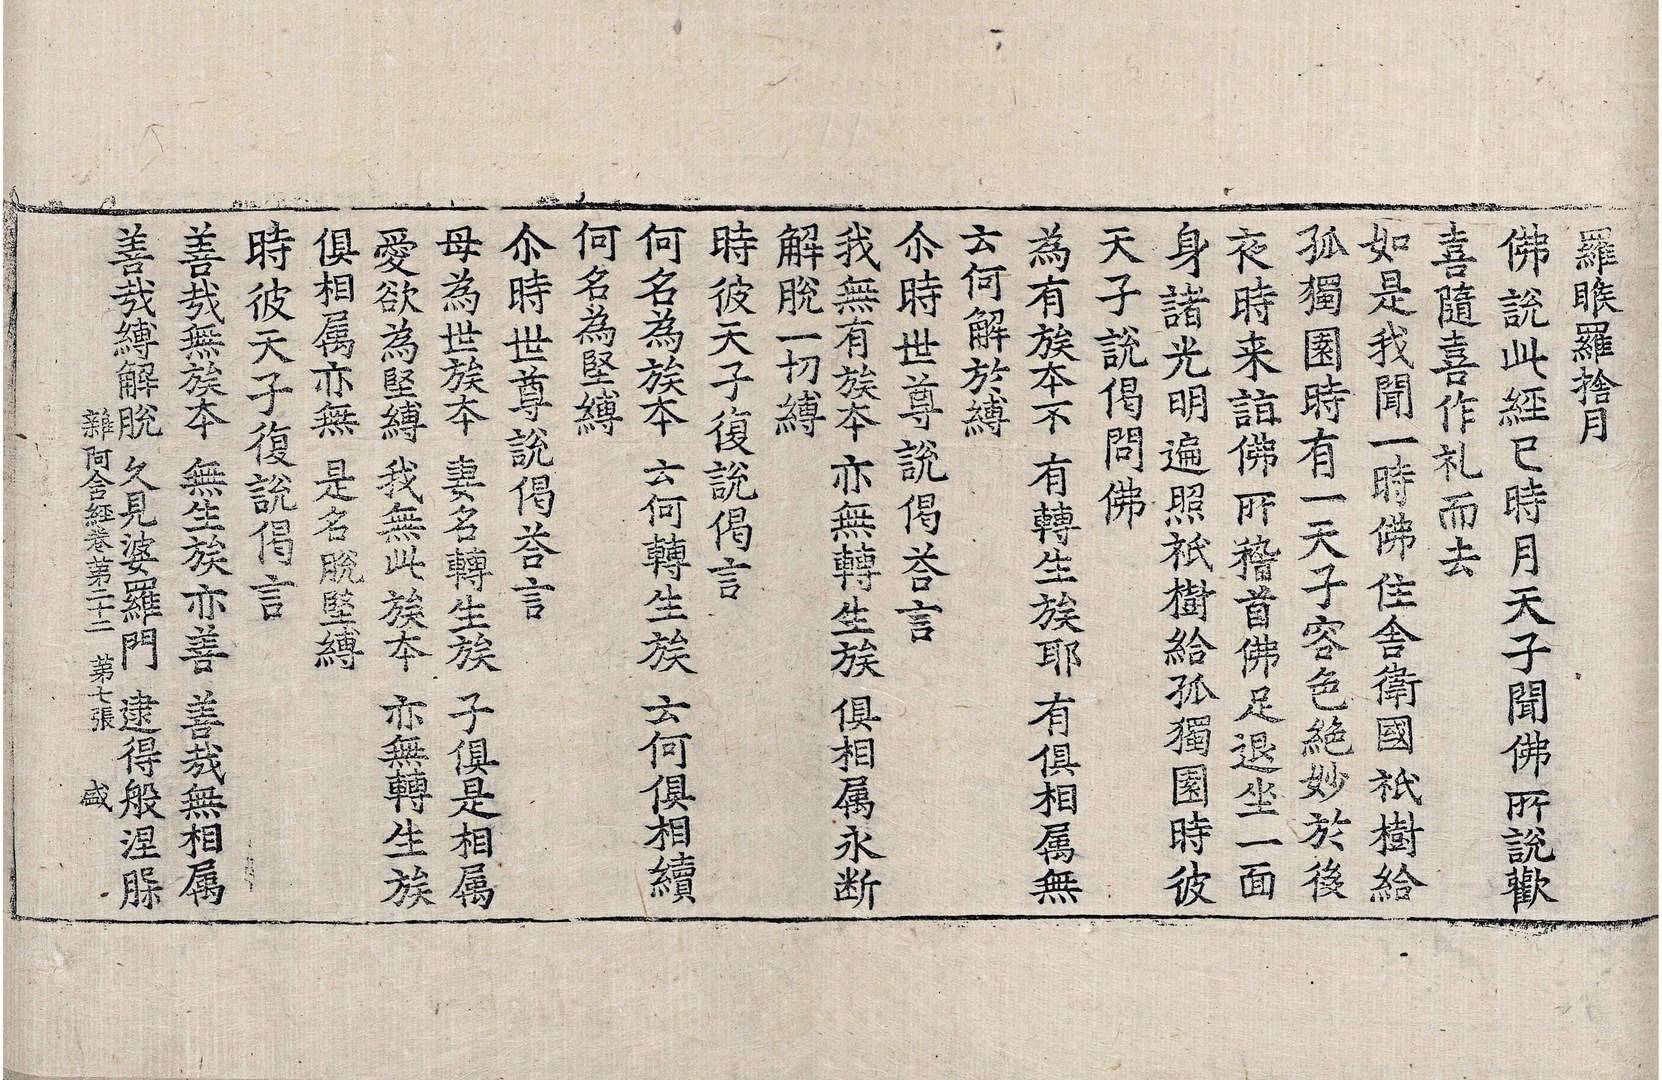 羅睺羅捨月
佛說此經已時月天子聞佛所說歡
喜隨喜作礼而去
如是我聞一時佛住舍衛國祇樹給
孤獨園時有一天子容色絕妙於後
夜時来詣佛所稽首佛足退坐一面
身諸光明遍照祇樹給孤獨園時彼
天子說偈問佛
為有族本不 有轉生族耶 有俱相属無
云何解於縛
尒時世尊說偈荅言
我無有族本 亦無轉生族 俱相属永断
解脫一切縛
時彼天子復說偈言
何名為族本 云何轉生族 云何俱相續
何名為堅縛
尒時世尊說偈荅言
母為世族本 妻名轉生族 子俱是相属
愛欲為堅縛 我無此族本 亦無轉生族
俱相属亦無 是名脫堅縛
時彼天子復說偈言
善哉無族本 無生族亦善 善哉無相属
善哉縛解脫 久見婆羅門 逮得般涅槃
雜阿含經卷第二十二 第七張 盛